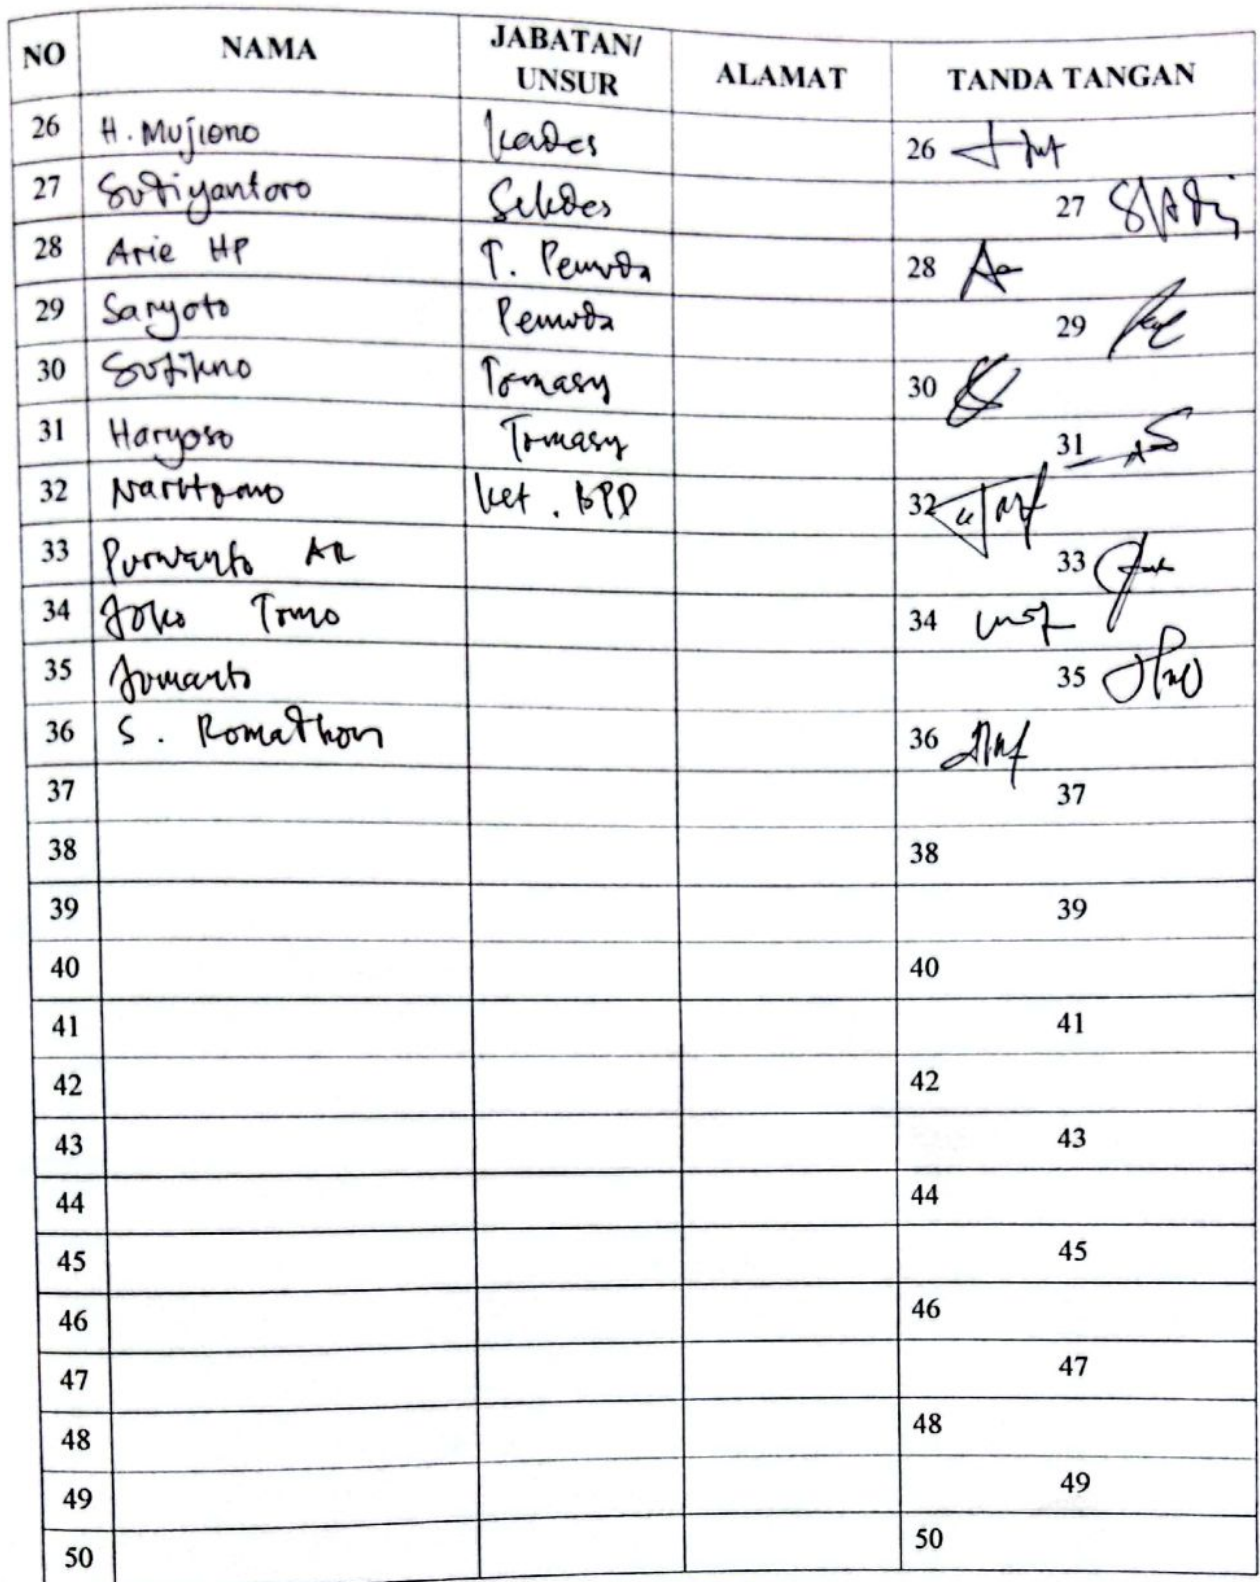 NO NAMA JABATAN/ UNSUR ALAMAT TANDA TANGAN
26 H. Mujiono Kades 26
27 Sutiyantoro Sekdes 27
28 Arie HP T. Pemuda 28
29 Saryoto Pemuda 29
30 Sutikno Tomasy 30
31 Haryoso Tomasy 31
32 Narutomo Ket. BPD 32
33 Purwanto AR 33
34 Joko Tomo 34
35 Jumanto 35
36 S. Romadhon 36
37 37
38 38
39 39
40 40
41 41
42 42
43 43
44 44
45 45
46 46
47 47
48 48
49 49
50 50